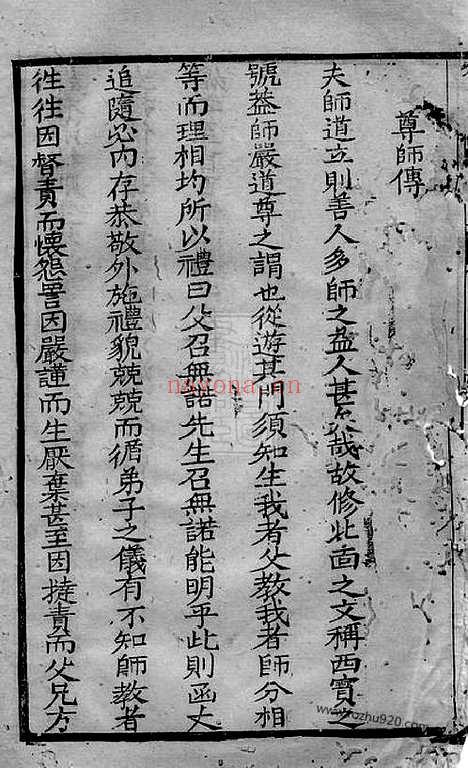 尊師傳
夫師道立則善人多師之益人甚 哉故修北面之文稱西賓之
號葢師嚴道尊之謂也從遊其門須知生我者父教我者師分相
等而理相均所以禮曰父召無諾先生召無諾能明乎此則函丈
追隨必內存恭敬外施禮貌兢兢而循弟子之儀有不知師教者
徃徃因督責而懷怨詈因嚴謹而生厭棄甚至因撻責而父兄方
nayona.cn
www.fuzhu920.com